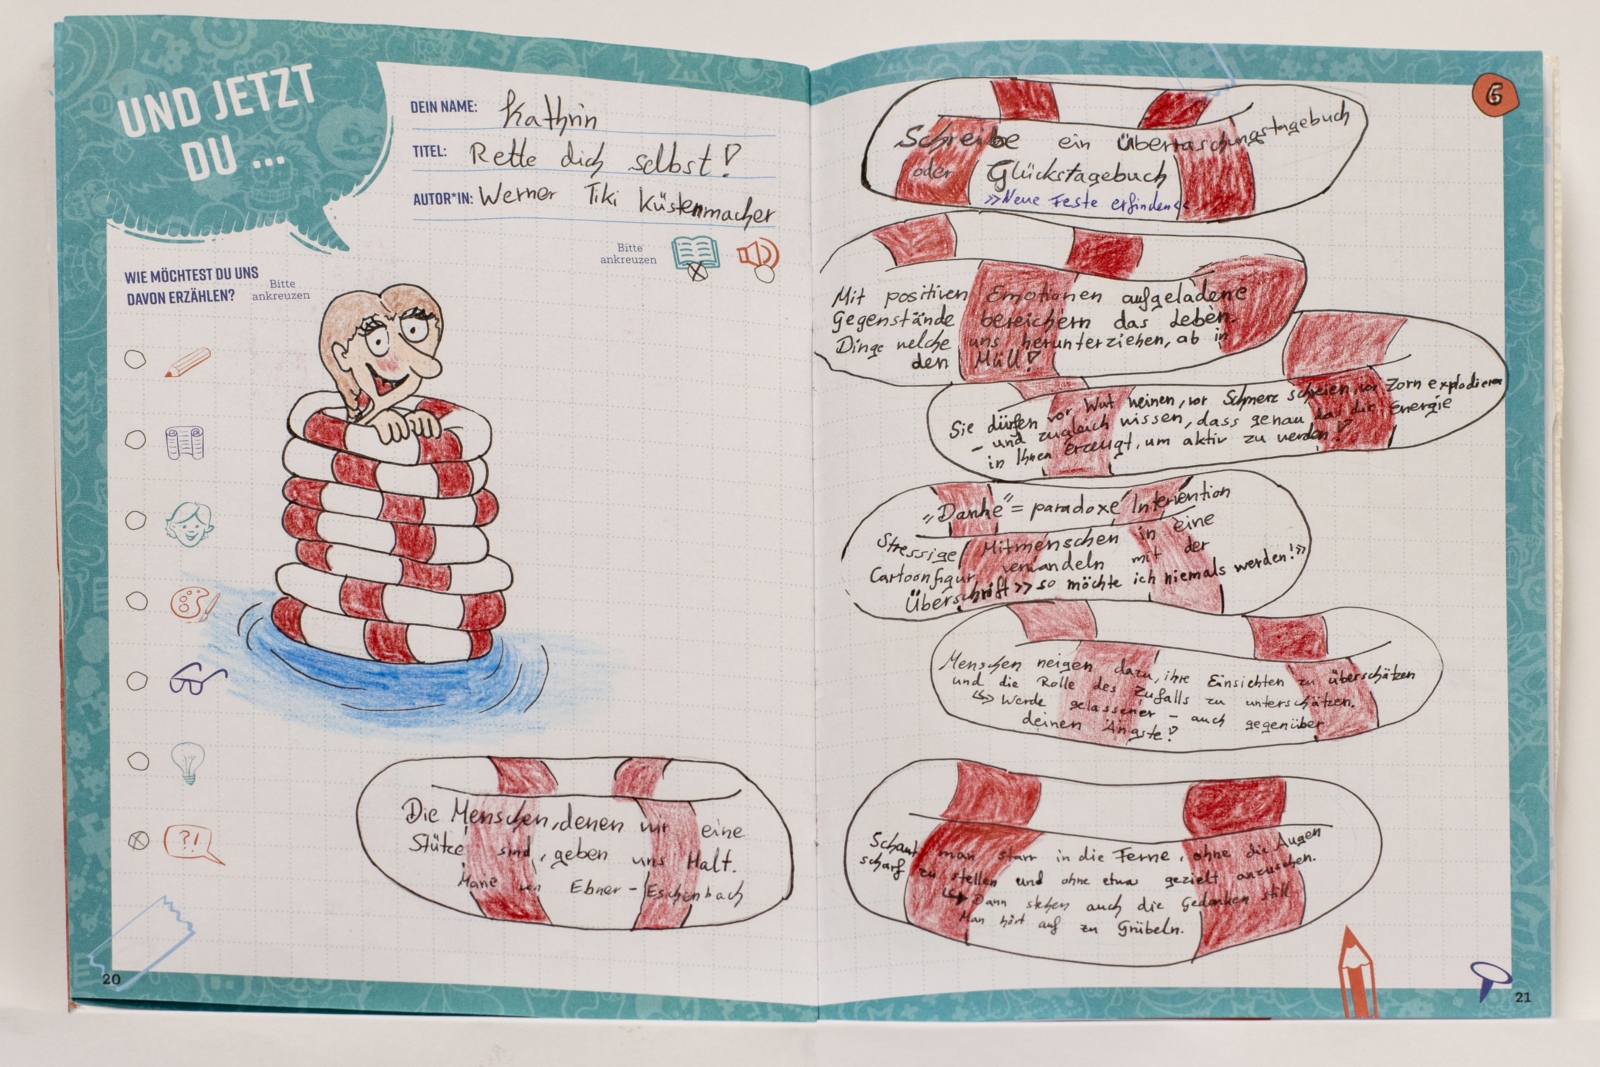 UND JETZT
DU ...
DEIN NAME: Kathrin
TITEL: Rette dich selbst!
AUTOR*IN: Werner Tiki Küstenmacher
Bitte
ankreuzen
WIE MÖCHTEST DU UNS
DAVON ERZÄHLEN?
Bitte
ankreuzen
?!
Die Menschen, denen wir eine
Stütze sind, geben uns Halt.
Marie von Ebner-Eschenbach
20
6
Schreibe ein Überraschungstagebuch
oder Glückstagebuch
»Neue Feste erfinden«
Mit positiven Emotionen aufgeladene
Gegenstände bereichern das Leben.
Dinge welche uns herunterziehen, ab in
den Müll!
Sie dürfen vor Wut weinen, vor Schmerz schreien, vor Zorn explodieren
- und zugleich wissen, dass genau das die Energie
in Ihnen erzeugt, um aktiv zu werden!
„Danke" = paradoxe Intervention
Stressige Mitmenschen in eine
Cartoonfigur verwandeln mit der
Überschrift »so möchte ich niemals werden!»
Menschen neigen dazu, ihre Einsichten zu überschätzen
und die Rolle des Zufalls zu unterschätzen.
↳ Werde gelassener - auch gegenüber
deinen Ängste!
Schaut man starr in die Ferne, ohne die Augen
scharf zu stellen und ohne etwa gezielt anzusehen.
↳ Dann stehen auch die Gedanken still
Man hört auf zu Grübeln.
21